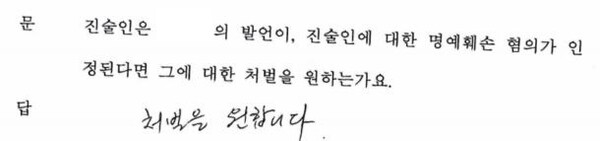 문 진술인은 의 발언이, 진술인에 대한 명예훼손 혐의가 인
정된다면 그에 대한 처벌을 원하는가요.
답 처벌을 원합니다.